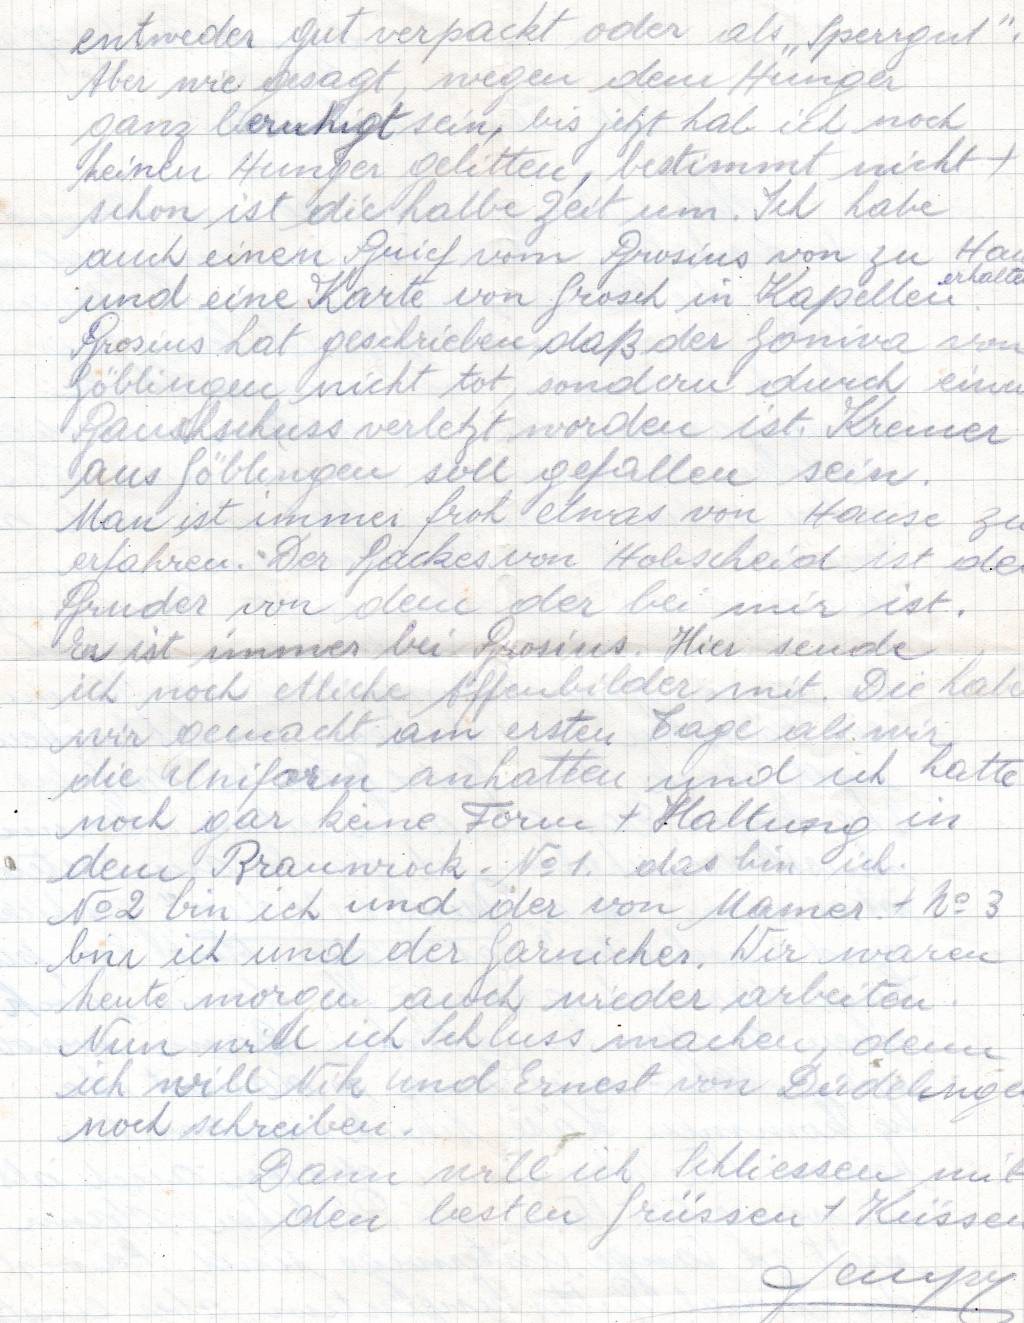 entweder gut verpackt oder als „Sperrgut".
Aber wie gesagt, wegen dem Hunger
ganz beruhigt sein, bis jetzt hab ich noch
keinen Hunger gelitten, bestimmt nicht +
schon ist die halbe Zeit um. Ich habe
auch einen Brief vom Brosius von zu Hau
erhalten
und eine Karte von Grosch in Kapellen
Brosius hat geschrieben daß der Goniva von
Göblingen nicht tot, sondern durch einen
Bauchschuss verletzt worden ist. Kremer
aus Göblingen soll gefallen sein.
Man ist immer froh etwas von Hause zu
erfahren. Der Backes von Hobscheid ist der
Bruder von dem der bei mir ist.
Er ist immer bei Brosius. Hier sende
ich noch etliche Affenbilder mit. Die hab
wir gemacht am ersten Tage als wir
die Uniform anhatten und ich hatte
noch gar keine Form + Haltung in
dem Braunrock. No 1. das bin ich.
No 2 bin ich und der von Mamer. + No 3
bin ich und der Garnicher. Wir waren
heute morgen auch wieder arbeiten.
Nun will ich Schluss machen, denn
ich will Nik und Ernest von Düdelingen
noch schreiben.
Dann will ich Schliessen mit
den besten Grüssen + Küssen
Jempy